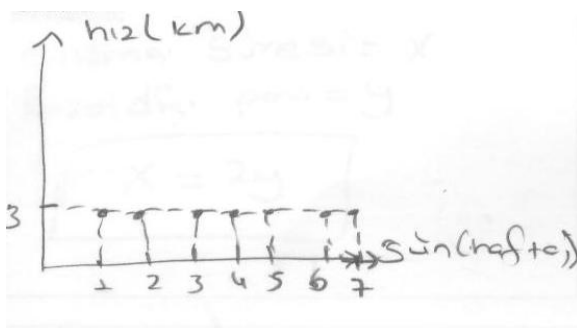 hız (km)
x
= y
x = 2y
3
1 2 3 4 5 6 7
gün (hafta)